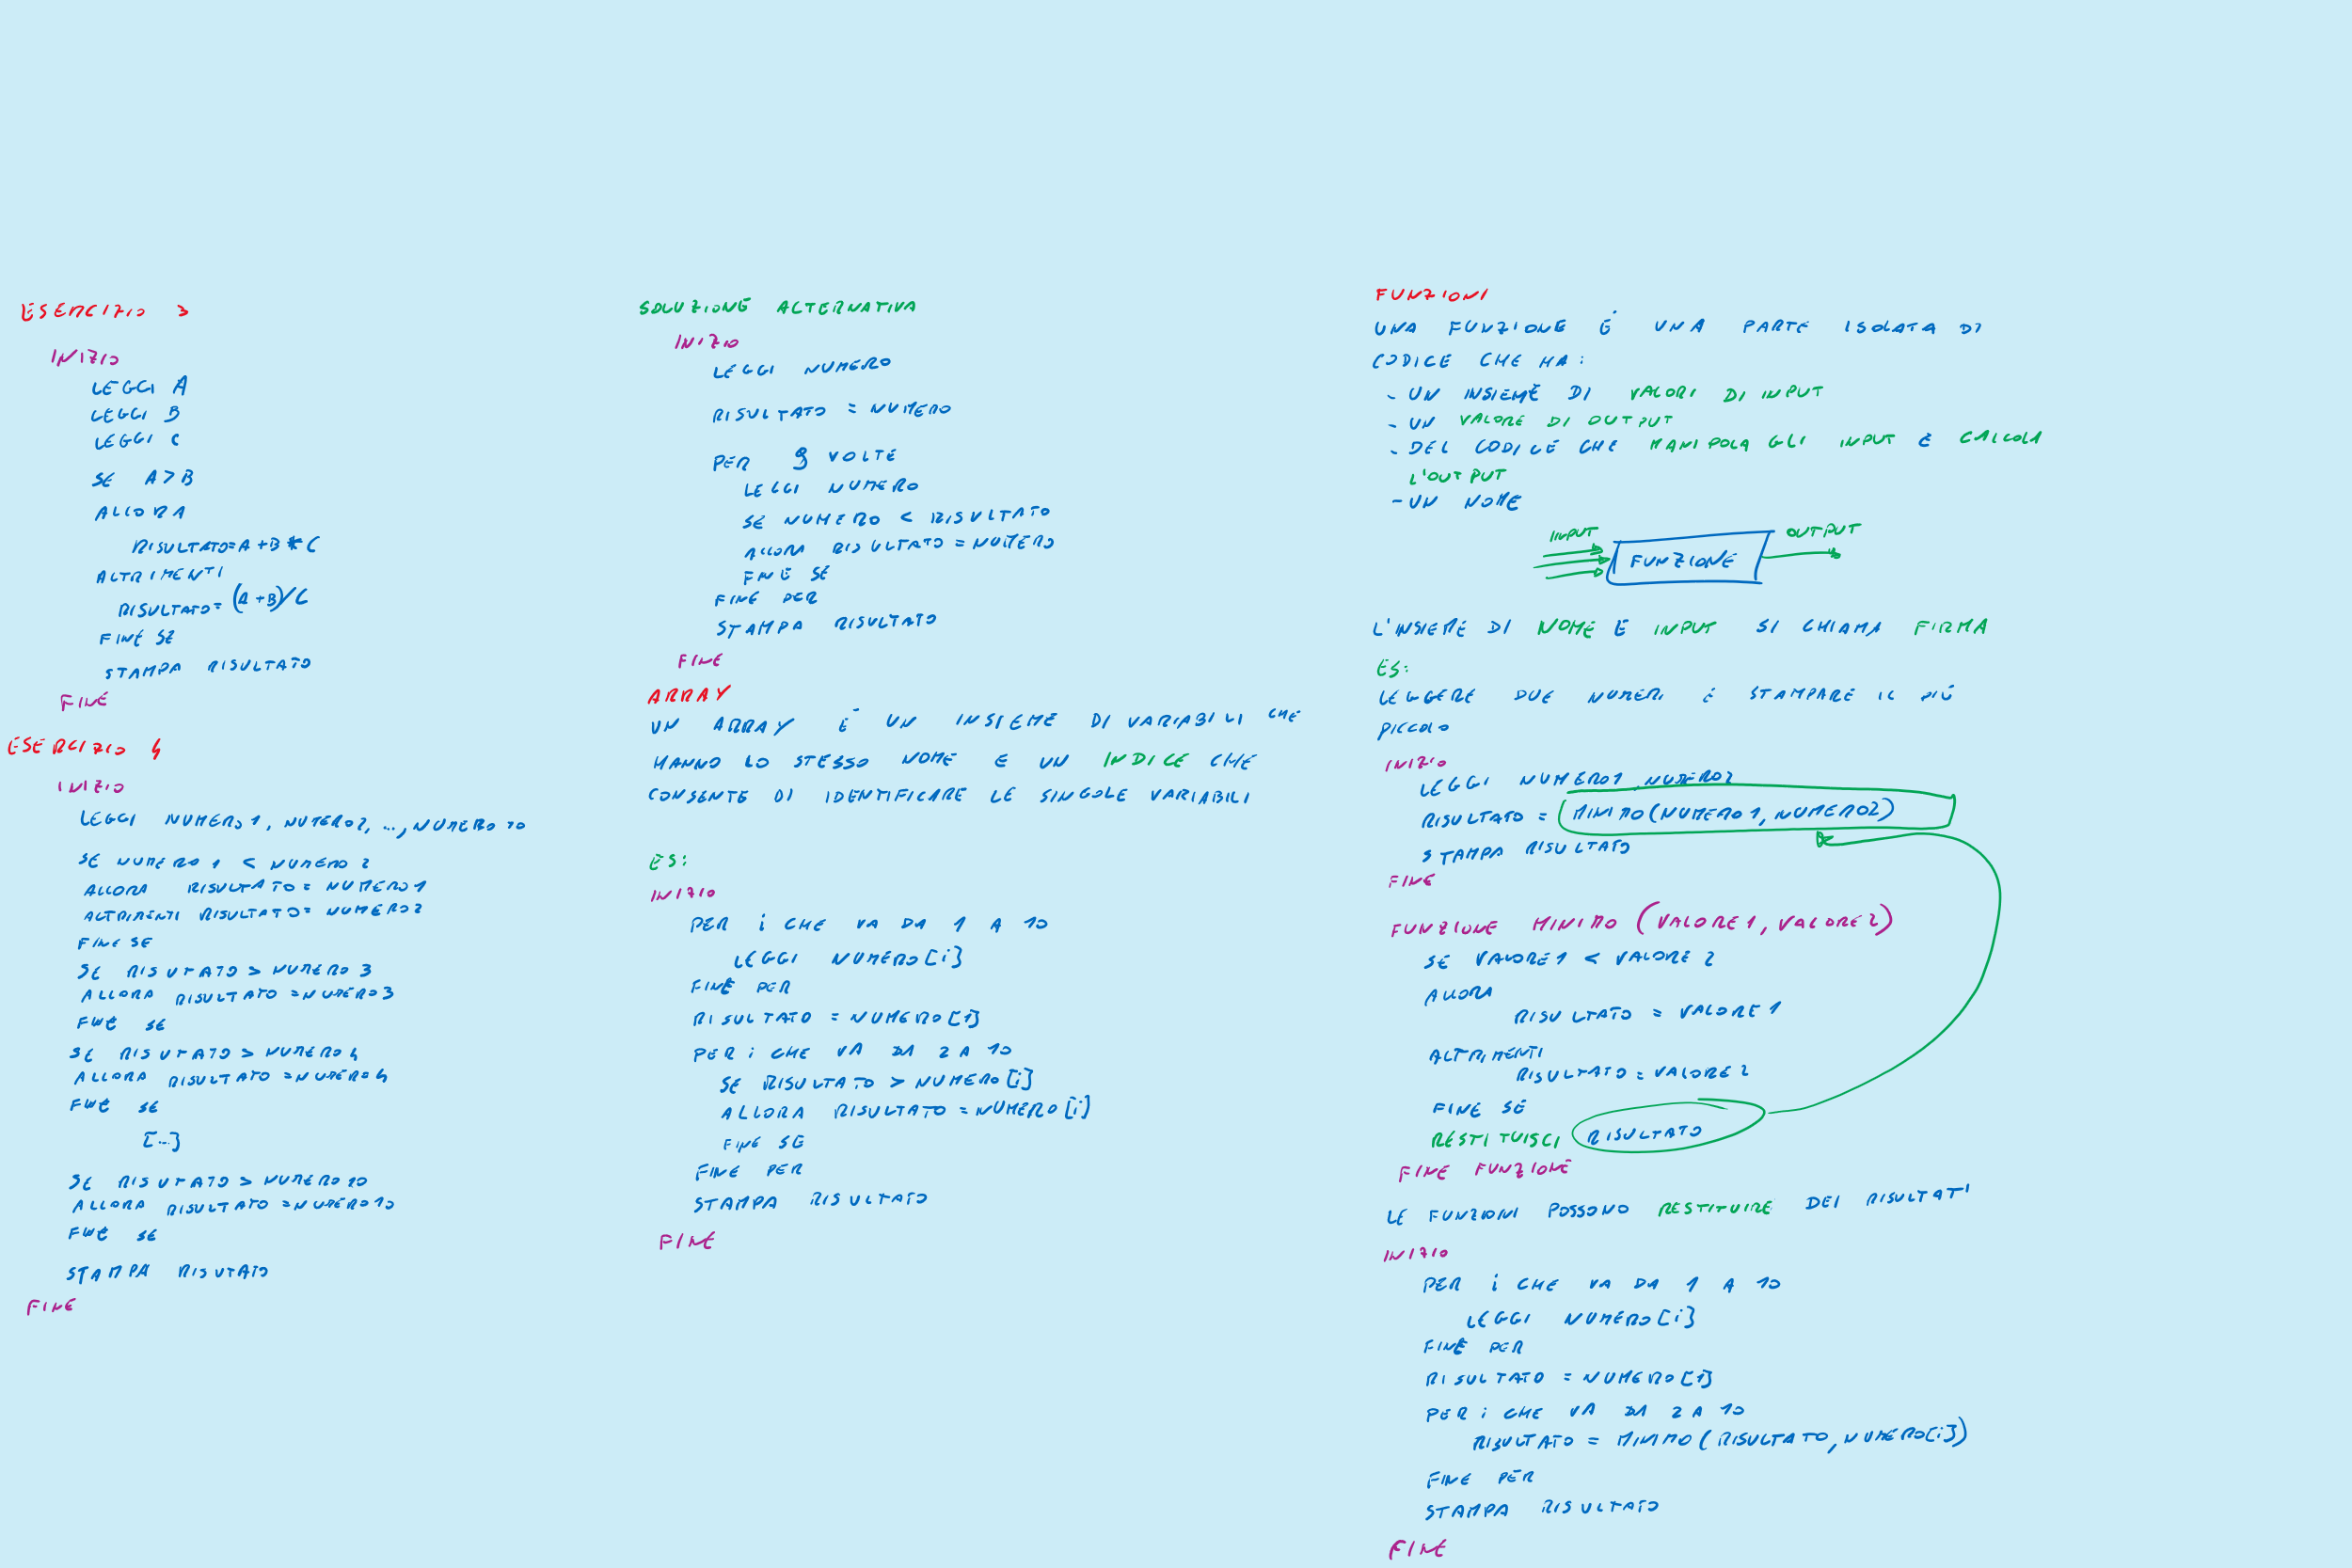 ESERCIZIO 3
INIZIO
LEGGI A
LEGGI B
LEGGI C
SE A>B
ALLORA
RISULTATO=A+B*C
ALTRIMENTI
RISULTATO=(A+B)/C
FINE SE
STAMPA RISULTATO
FINE
ESERCIZIO 4
INIZIO
LEGGI NUMERO1, NUMERO2, ..., NUMERO10
SE NUMERO1 < NUMERO2
ALLORA RISULTATO = NUMERO1
ALTRIMENTI RISULTATO = NUMERO2
FINE SE
SE RISULTATO > NUMERO3
ALLORA RISULTATO = NUMERO3
FINE SE
SE RISULTATO > NUMERO4
ALLORA RISULTATO = NUMERO4
FINE SE
[...]
SE RISULTATO > NUMERO10
ALLORA RISULTATO = NUMERO10
FINE SE
STAMPA RISUTATO
FINE
SOLUZIONE ALTERNATIVA
INIZIO
LEGGI NUMERO
RISULTATO = NUMERO
PER 9 VOLTE
LEGGI NUMERO
SE NUMERO < RISULTATO
ALLORA RISULTATO = NUMERO
FINE SE
FINE PER
STAMPA RISULTATO
FINE
ARRAY
UN ARRAY È UN INSIEME DI VARIABILI CHE
HANNO LO STESSO NOME E UN INDICE CHE
CONSENTE DI IDENTIFICARE LE SINGOLE VARIABILI
ES:
INIZIO
PER i CHE VA DA 1 A 10
LEGGI NUMERO[i]
FINE PER
RISULTATO = NUMERO[1]
PER i CHE VA DA 2 A 10
SE RISULTATO > NUMERO[i]
ALLORA RISULTATO = NUMERO[i]
FINE SE
FINE PER
STAMPA RISULTATO
FINE
FUNZIONI
UNA FUNZIONE È UNA PARTE ISOLATA DI
CODICE CHE HA:
- UN INSIEME DI VALORI DI INPUT
- UN VALORE DI OUTPUT
- DEL CODICE CHE MANIPOLA GLI INPUT E CALCOLA
L'OUTPUT
- UN NOME
INPUT FUNZIONE OUTPUT
L'INSIEME DI NOME E INPUT SI CHIAMA FIRMA
ES:
LEGGERE DUE NUMERI E STAMPARE IL PIÙ
PICCOLO
INIZIO
LEGGI NUMERO1, NUMERO2
RISULTATO = MINIMO(NUMERO1, NUMERO2)
STAMPA RISULTATO
FINE
FUNZIONE MINIMO (VALORE1, VALORE2)
SE VALORE1 < VALORE2
ALLORA
RISULTATO = VALORE1
ALTRIMENTI
RISULTATO = VALORE2
FINE SE
RESTITUISCI RISULTATO
FINE FUNZIONE
LE FUNZIONI POSSONO RESTITUIRE DEI RISULTATI
INIZIO
PER i CHE VA DA 1 A 10
LEGGI NUMERO[i]
FINE PER
RISULTATO = NUMERO[1]
PER i CHE VA DA 2 A 10
RISULTATO = MINIMO(RISULTATO, NUMERO[i])
FINE PER
STAMPA RISULTATO
FINE